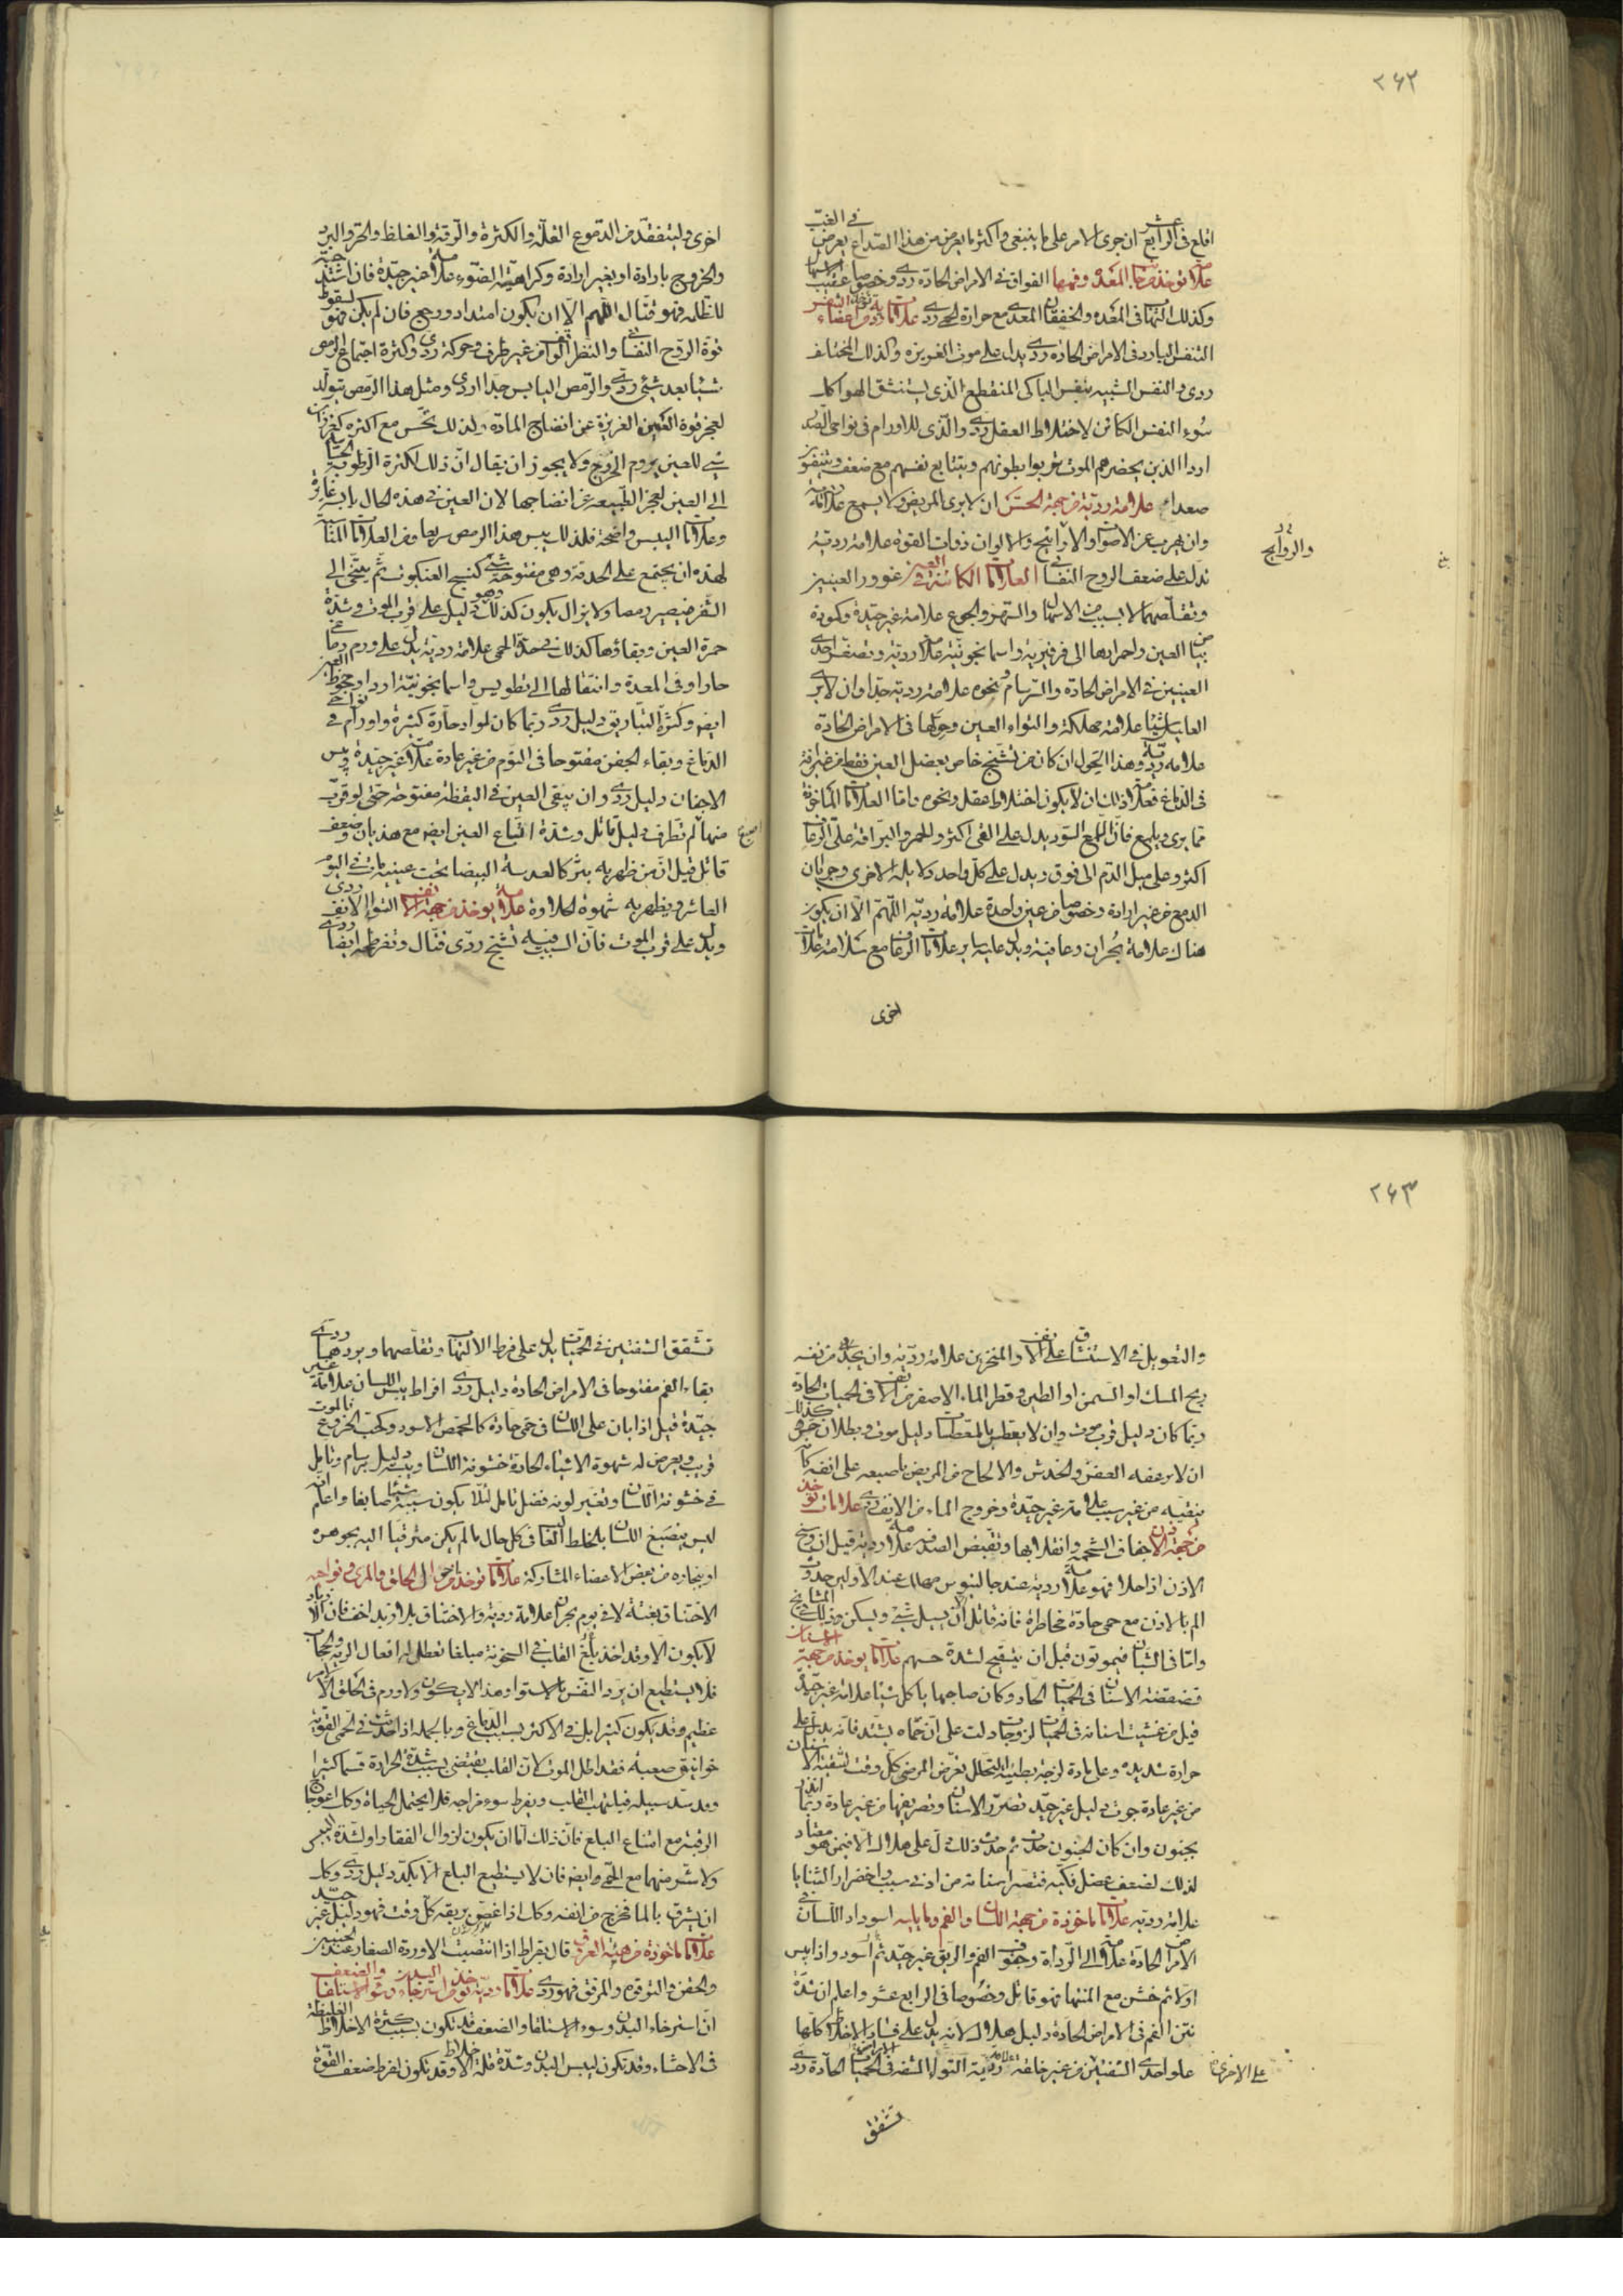 ٢٦٢
في الغب
اقلع في الرابع عشر ان جرى الامر على ما ينبغي واكثر ما يعرض من هذا الصداع يعرض
علامات توخذ من جهة المعدة وفمها الفواق في الامراض الحادة ردي وخصوصا عقيب
وكذلك التهاب في المعدة والخفقان المعدي مع حرارة الحمى ردي علامات من اعضاء النفس
التنفس البارد في الامراض الحادة ردي يدل على موت الغريزة وكذلك المختلف
ردي والنفس الشبيه بنفس الباكي المنقطع الذي يستنشق الهواء كا
سوء النفس الكائن لاختلاط العقل ردي والذي للاورام في نواحي الصدر
اردا الذين يحضرهم الموت تربوا بطونهم ويتتابع نفسهم مع ضعف ويتنفسون
صعداء علامة ردية من جهة الحس ان لا يرى المريض ولا يسمع علامة
وان يهرب عن الاصوات والاراييح والالوان ذوات القوة علامة ردية
والروايح
تدل على ضعف الروح النفساني العلامات الكائنة في العين غوور العينين
وتقلصهما لا بسبب من الاسهال والسهر والجوع علامة غير جيدة وكمودة
بياض العين واحمرارها الى فرفيرية واسمانجونية علامة ردية وتصغر احدى
العينين في الامراض الحادة والسرسام ونحوه علامة ردية جدا وان لا يرى
العليل شيئا علامة مهلكة والتواء العين وحولها في الامراض الحادة
علامة ردية وهذا الحول ان كان من تشنج خاص بعضل العين فقط من غير افة
في الدماغ فعلامة ذلك ان لا يكون اختلاط عقل ونحوه واما العلامات الماخوذة
مما يرى ويلمع فان اللمع السود يدل على القي اكثر والحمر والبراقة على الرعاف
اكثر وعلى ميل الدم الى فوق ويدل على كل واحد دلايله الاخرى وجريان
الدمع من غير ارادة وخصوصا من عين واحدة علامة ردية اللهم الا ان يكون
هناك علامة بحران وعافية ويدل عليه ساير علامات الرعاف مع سلامة علامات
اخرى
اخرى وليتفقد من الدموع القلة والكثرة والرقة والغلظ والحر والبرد
والخروج بارادة او بغير ارادة وكراهية الضوء علامة غير جيدة فان اشتد
للظلمة فهو قتال اللهم الا ان يكون امتداد ووجع فان لم يكن فهو لسقوط
قوة الروح النفساني والنظر الواقف من غير طرف وحركة ردي وكثرة اجتماع الرمص
شيئا بعد شيء ردي والرمص اليابس جدا اردى ومثل هذا الرمص يتولد
لعجز قوة العين الغريزة عن انضاج المادة ولذلك يحس مع اكثره كغرزان
شي للعين يروم الخروج ولا يجوز ان يقال ان ذلك لكثرة الرطوبة
الى العين لعجز الطبيعة عن انضاجها لان العين في هذه الحال يابسة غايرة
وعلامات اليبس واضحة فلذلك يبس هذا الرمص سريعا ومن العلامات المنا
لهذه ان يجتمع على الحدقة وهي مفتوحة شي كنسج العنكبوت ثم ينتحى الى
الشفر فيصير رمصا ولا يزال يكون كذلك وهو دليل على قرب الموت وشدة
حمرة العين وبقاؤها كذلك في حدة الحمى علامة ردية يدل على ورم دماغي
حارا وفي المعدة وانتقالها الى تطويس واسمانجونية اردا وجحوظ العين
ايضا وكثرة التباريق دليل ردي ربما كان لمواد حارة كثيرة واورام في نواحي
الدماغ وبقاء الجفن مفتوحا في النوم من غير عادة علامة غير جيدة ويبس
الاجفان دليل ردي وان يبقى العين في اليقظة مفتوحة حتى لو قرب
منها لم تطرف دليل قاتل وشدة اتساع العين ايضا مع هذيان وضعف
قاتل قيل ان من ظهر به بثر كالعدسة البيضا تحت عينيه مات في اليوم
العاشر ويظهر به شهوة لحلاوة علامات يوخذ من جهة الانف التواء الانف ردي
ويدل على قرب الموت فان السبب فيه تشنج ردي قتال وتفرطحه ايضا ردي
٢٦٣
والتعويل في الاستنشاق على الانف والمنخرين علامة ردية وان يجد من نفسه
ريح المسك او السمن او الطين وقطر الماء الاصفر من الانف في الحميات الحادة
ربما كان دليل قرب موت وان لا يعطس بالمعطسات دليل موت وبطلان حس وكذلك
ان لا يرعفه العفن والخدش والالحاح من المريض باصبعه على انفه كانه
ينقيه من غير سبب علامة غير جيدة وخروج الماء من الانف ردي علامات توخذ
من جهة الاذن جفاف الشحمة وانقلابها وتقبض الصدفة علامة ردية قيل ان وسخ
الاذن اذا حلا فهو علامة ردية عند جالينوس مهلك عند الاولين حدوث
الم بالاذن مع حمى حادة مخاطرة فانه قاتل الا ان يسيل شي ويسكن وذلك في المشايخ
واما في الشبان فيموتون قبل ان يتقيح لشدة حسهم علامات يوخذ من جهة الاسنان
قضقضة الاسنان في الحميات الحاد وكان صاحبها ياكل شيئا علامة غير جيدة
قيل من غشيت اسنانه في الحميات لزوجات دلت على ان حماه يشتد فانه يدل على
حرارة شديدة وعلى مادة لزجة بطيئة التحلل تعرض المرضى كل وقت لتنقية الاسنان
من غير عادة جرت دليل غير جيد تصرر الاسنان وتصريفها من غير عادة ربما انذر
بجنون وان كان الجنون حدث ثم حدث ذلك دل على هلاك الا فيمن هو معتاد
لذلك لضعف عضل فكيه فتصر اسنانه من ادنى سبب اخضرار الثنايا
علامة ردية علامات ماخوذة من جهة اللسان والفم وما يليه اسوداد اللسان في
الامراض الحادة علامة الى الرداة وجفوف الفم والريق غير جيد ثم اسود واذا يبس
اولا ثم خشن مع المنتهى فهو قاتل وخصوصا في الرابع عشر واعلم ان شدة
نتن الفم في الامراض الحادة دليل هلاك لانه يدل على فساد الاخلاط كلها
على الاخرى
علو احدى الشفتين من غير خلقة ردية التواء الشفة في الحميات الحادة ردي
تشقق
تشقق الشفتين في الحميات يدل على فرط الالتهاب وتقلصهما وبردهما ردي
بقاء الفم مفتوحا في الامراض الحادة دليل ردي افراط يبس اللسان علامة غير
جيدة قيل اذا بان على اللسان في حمى حادة كالحمص الاسود وكحب الخروع فالموت
قريب ويعرض له شهوة الاشياء الحادة خشونة اللسان ويبسه دليل برسام وتامل
في خشونة اللسان وتغير لونه فضل تامل لئلا يكون سببه شيئا صابغا واعلم انه
ليس ينصبغ اللسان بالخلط الغالب في كل حال ما لم يكن مترقيا اليه بجوهره
او بخاره من بعض الاعضاء المشاركة علامات توخذ من احوال الحلق والمري ونواحيه
الاختناق بغتة لا في يوم بحران علامة ردية والاختناق بلا زبد اخف فان الزبد
لا يكون الا وقد اخذ بلغ القلب في السخونة مبلغا تعطل له افعال الرية والحجاب
فلا يستطيع ان يرد النفس بالاستواء وهذا لا يكون ولا ورم في الحلق الا لامر
عظيم وقد يكون كثيرا بل في الاكثر بسبب الدماغ وبالجملة اذا حدث في الحمى القوية
خوانيق صعبة فقد اطل الموت لان القلب يقتضي بسبب شدة الحرارة نسما كثيرا
وقد سد سبيله فيلتهب القلب ويفرط سوء مزاجه فلا يحتمل الحياة وكذا اعوجاج
الرقبة مع امتناع البلع فان ذلك اما ان يكون لزوال الفقار او لشدة اليبس
ولا شر منهما مع الحمى وايضا فان لا يستطيع البلع الا بكد دليل ردي وكذا
ان يشرق بالماء فخرج من انفه وكذا اذا غص بريقه كل وقت فهو دليل غير جيد
علامات ماخوذة من هيئة العروق قال بقراط اذا انتصبت الاوردة الصغار عند الجبين
والجفن والترقوة والمرفق فهو ردي علامات ردية توخذ من استرخاء البدن والضعف وسوء الاستلقاء
ان استرخاء البدن وسوء الاستلقاء والضعف قد تكون بسبب كثرة الاخلاط الغليظة
في الاحشاء وقد تكون ليبس البدن وشدة قلة الاخلاط وقد تكون لفرط ضعف القوة